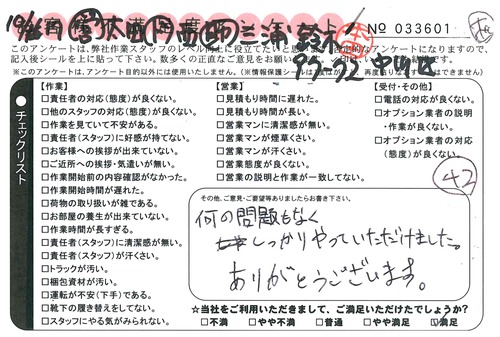 № 033601
このアンケートは、弊社作業スタッフのレベル向上に役立てたいと
なアンケートになりますので、
記入後シールを上に貼って下さい。数多くの正直なご意見をお願い
※このアンケートは、アンケート目的以外には使用いたしません。(※情報保護シール
はがせません)
チェックリスト
【作業】
□責任者の対応(態度)が良くない。
□他のスタッフの対応(態度)が良くない。
□作業を見ていて不安がある。
□責任者(スタッフ)に好感が持てない。
□お客様への挨拶が出来ていない。
□ご近所への挨拶・気遣いが無い。
□作業開始前の内容確認がなかった。
□作業開始時間が遅れた。
□荷物の取り扱いが雑である。
□お部屋の養生が出来ていない。
□作業時間が長すぎる。
□責任者(スタッフ)に清潔感が無い。
□責任者(スタッフ)が汗くさい。
□トラックが汚い。
□梱包資材が汚い。
□運転が不安(下手)である。
□靴下の履き替えをしてない。
□スタッフにやる気がみられない。
【営業】
□見積もり時間に遅れた。
□見積もり時間が長い。
□営業マンに清潔感が無い。
□営業マンが煙草くさい。
□営業マンが汗くさい。
□営業態度が良くない。
□営業の説明と作業が違ってない。
【受付・その他】
□電話の対応が良くない。
□オプション業者の説明
・作業が良くない。
□オプション業者の対応
(態度)が良くない。
42
その他、ご意見・ご要望等ありましたらお書き下さい。
何の問題もなく
しっかりやっていただけました。
ありがとうございます。
☆当社をご利用いただきまして、ご満足いただけたでしょうか?
□不満 □やや不満 □普通 □やや満足 □満足